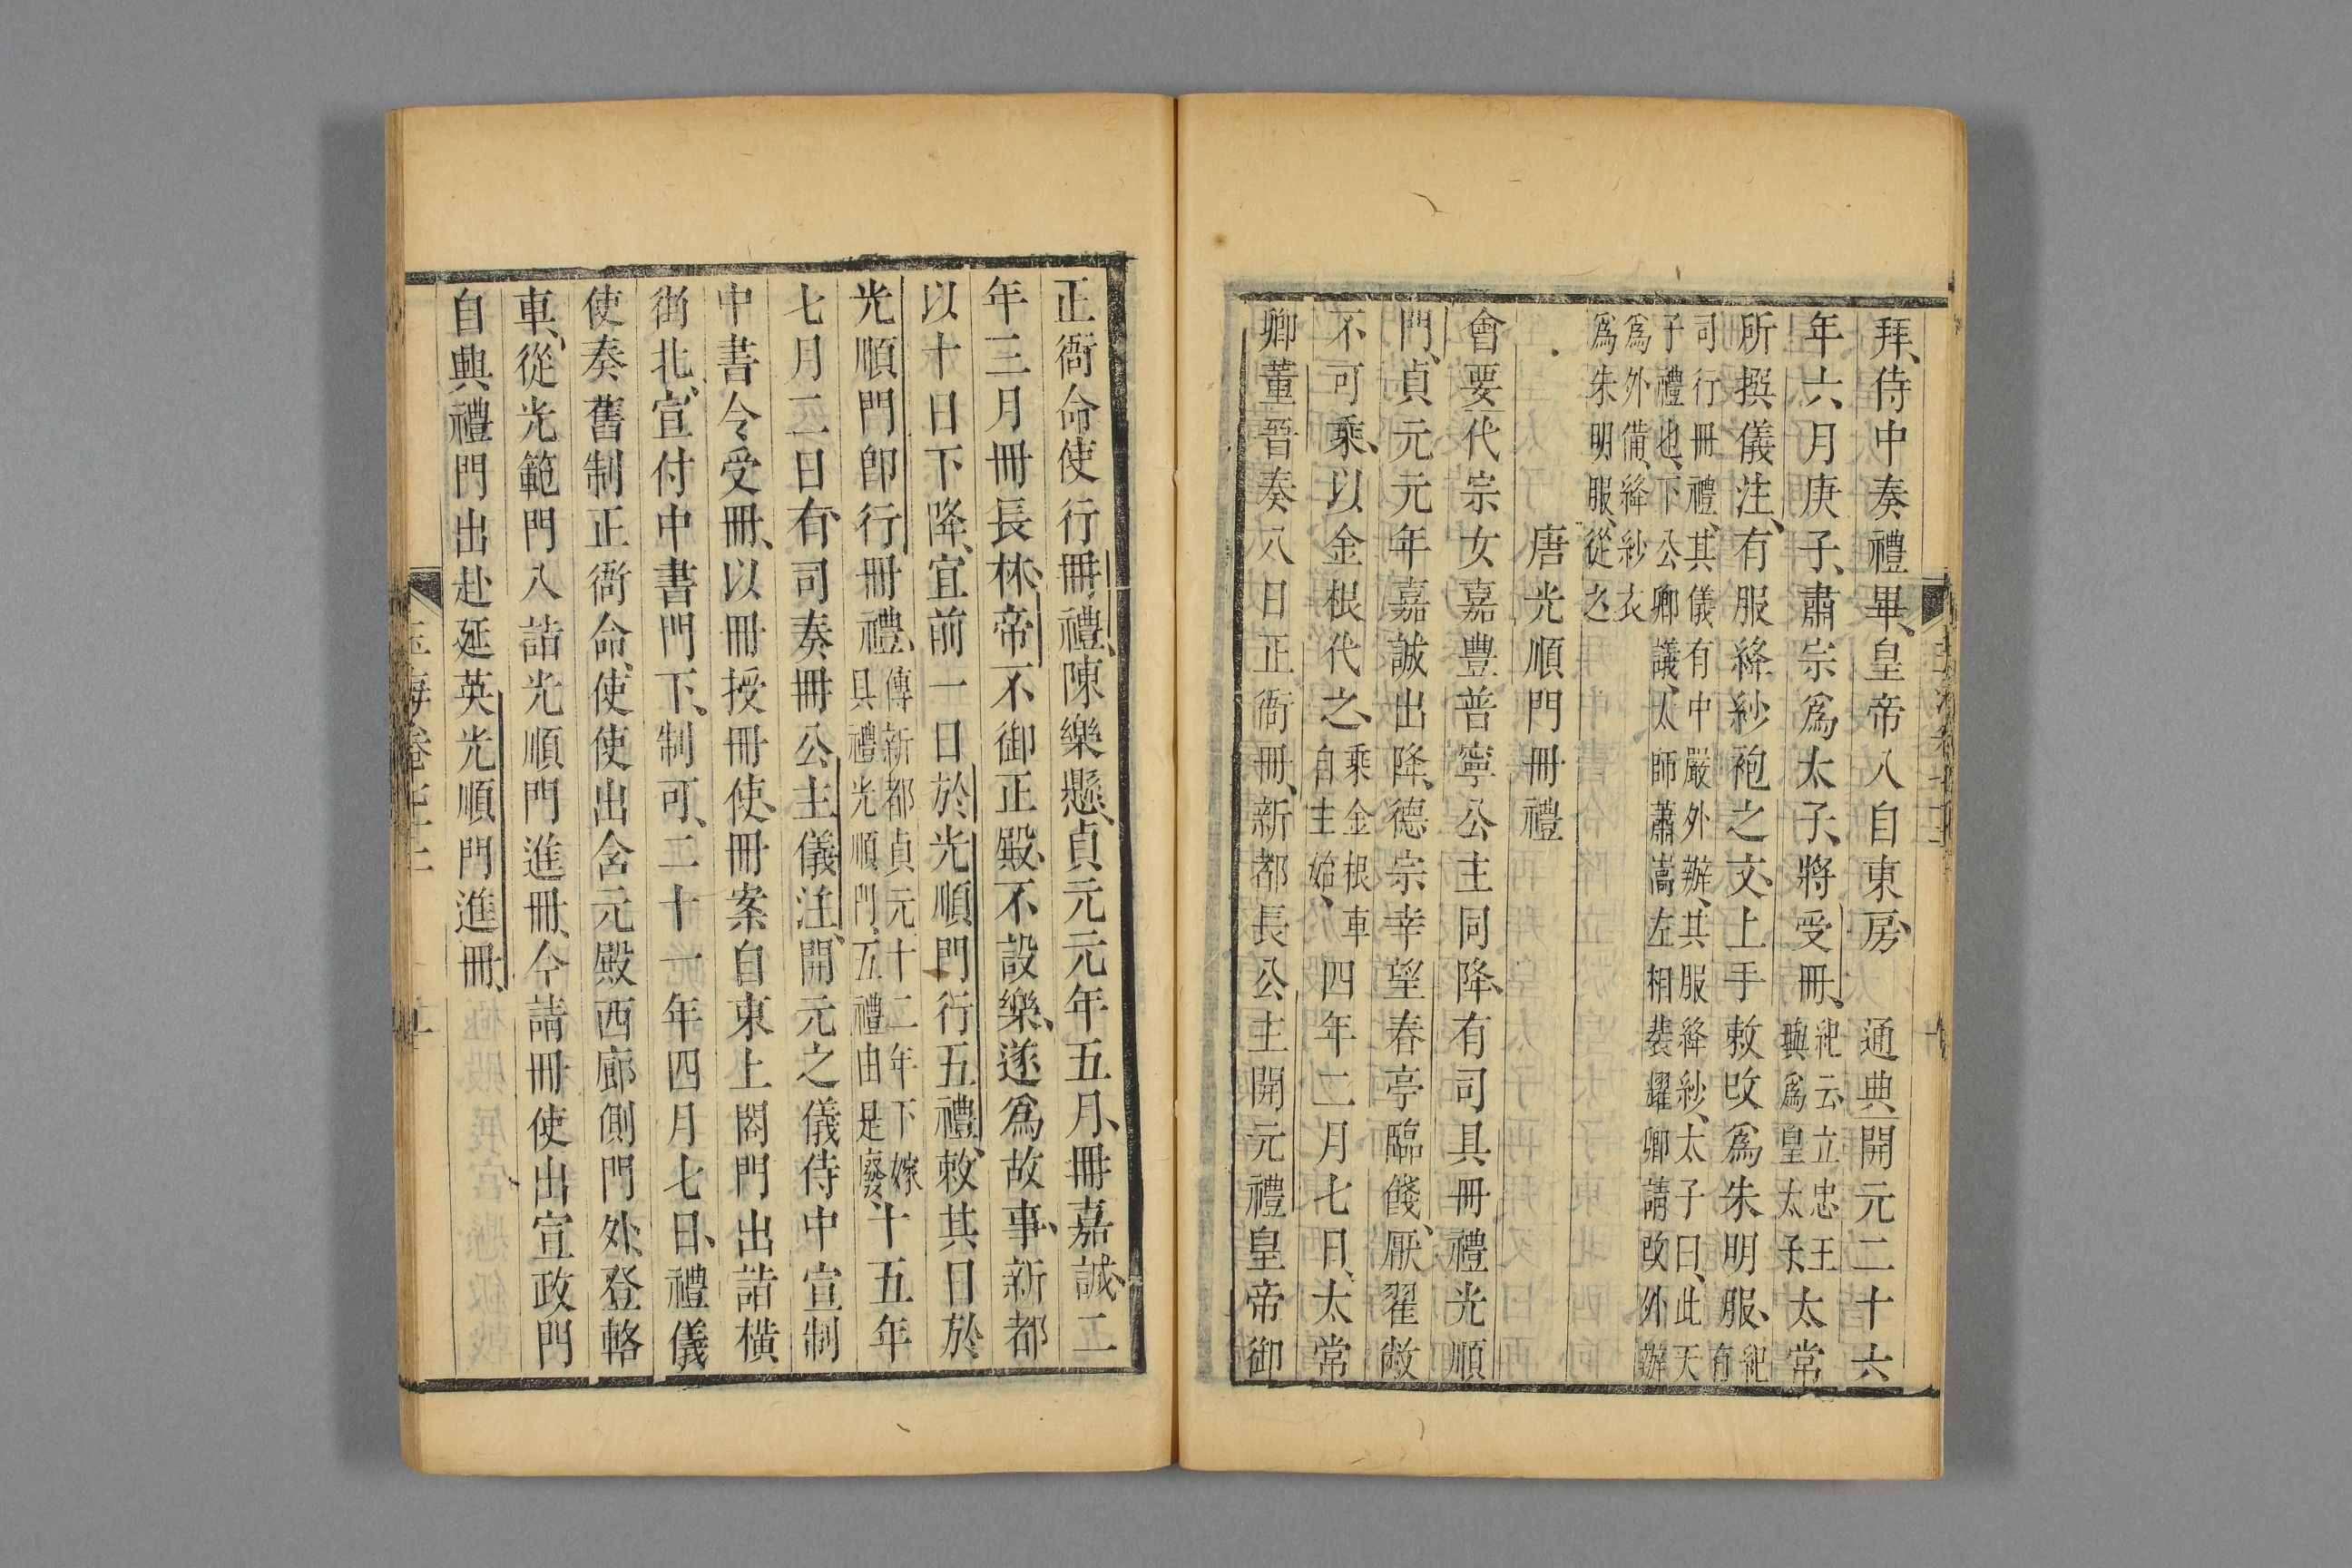 拜、侍中奏禮畢、皇帝入自東房、　通典開元二十六
年六月庚子、肅宗爲太子、將受冊、紀云、立忠王璵爲皇太子、太常
所撰儀注、有服絳紗袍之文、上手敕改爲朱明服、紀有
司行冊禮、其儀有中嚴外辦、其服絳紗、太子曰、此天
子禮也、下公卿議、太師蕭嵩左相裴耀卿請改外辦
爲外備、絳紗衣
爲朱明服、從之
唐光順門冊禮
會要代宗女嘉豐普寧公主同降、有司具冊禮光順
門、貞元元年嘉誠出降、德宗幸望春亭臨餞、厭翟敝
不可乘、以金根代之、乘金根車自主始、四年二月七日、太常
卿董晉奏八日正衙冊、新都長公主開元禮皇帝御
正衙命使行冊禮、陳樂懸、貞元元年五月、冊嘉誠、二
年三月冊長林、帝不御正殿、不設樂、遂爲故事、新都
以十日下降、宜前一日於光順門行五禮、敕其日於
光順門卽行冊禮、傳新都貞元十二年下嫁具禮光順門、五禮由是廢、十五年
七月二日、有司奏冊公主儀注、開元之儀侍中宣制
中書令受冊、以冊授冊使、冊案自東上閤門出詣橫
街北、宣付中書門下、制可、二十一年四月七日、禮儀
使奏舊制正衙命使、使出含元殿西廊側門外、登輅
車、從光範門入詣光順門進冊、今請冊使出宣政門
自興禮門出赴延英光順門進冊、
玉海卷